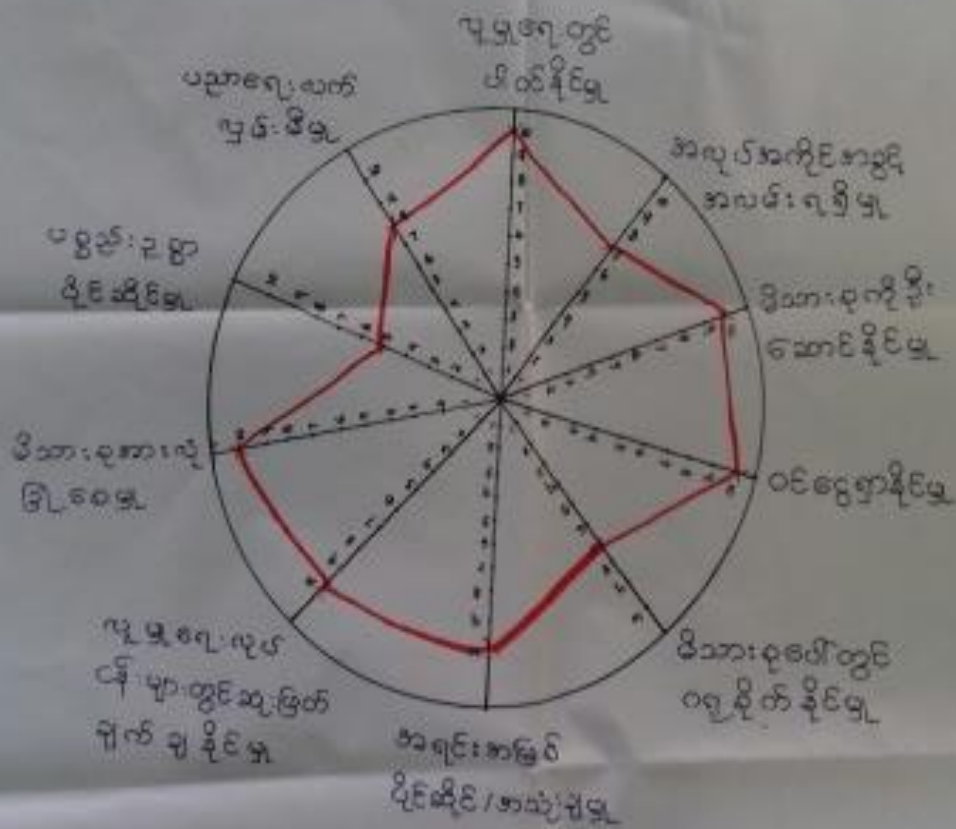 လူမှုရေးတွင်
ပါဝင်နိုင်မှု
အလုပ်အကိုင်အခွင့်
အလမ်းရရှိမှု
မိသားစုကိုဦး
ဆောင်နိုင်မှု
ဝင်ငွေရှာနိုင်မှု
မိသားစုပေါ်တွင်
ဂရုစိုက်နိုင်မှု
အရင်းအမြစ်
ပိုင်ဆိုင်/အသုံးချမှု
လူမှုရေးလုပ်
ငန်းများတွင်ဆုံးဖြတ်
ချက်ချနိုင်မှု
မိသားစုအားလုံ
ခြုံစေမှု
ပစ္စည်းဥစ္စာ
ပိုင်ဆိုင်မှု
ပညာရေးလက်
လှမ်းမီမှု